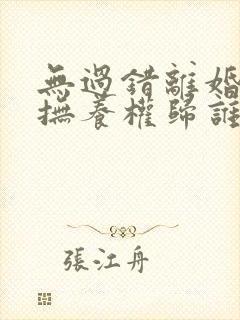 無過錯離婚
撫養權歸誰
張江舟